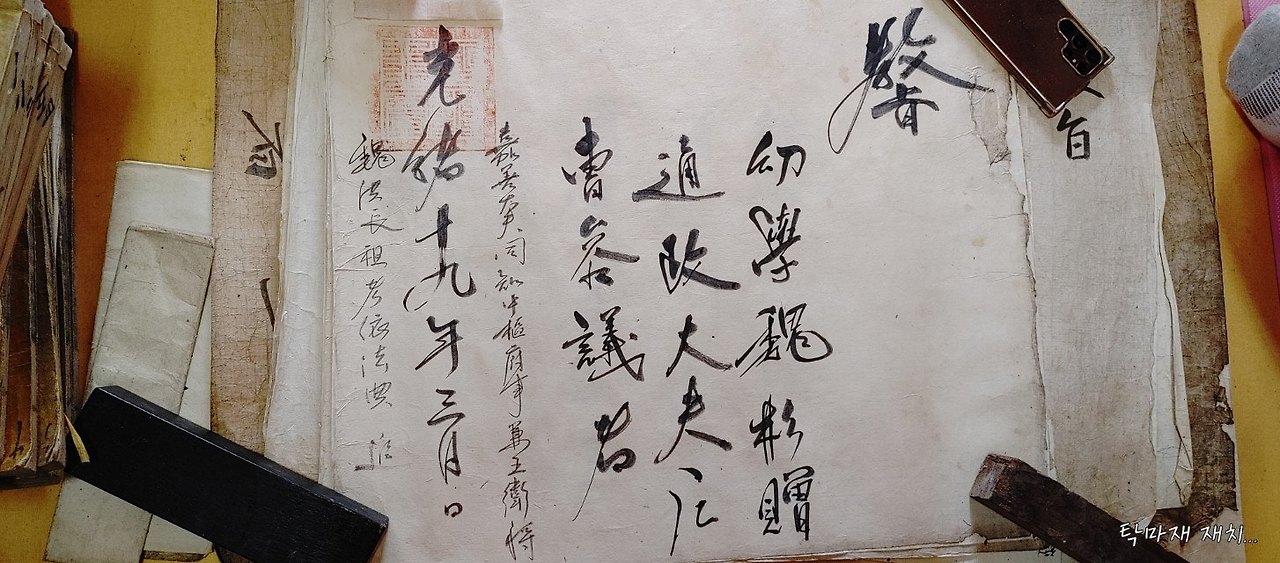 旨
敎旨
幼學魏贈
通政大夫戶
曹參議者
嘉善大夫同知中樞府事兼五衛將
光緖十九年三月日
魏洪長祖考依法典 追
탁마재 재치...